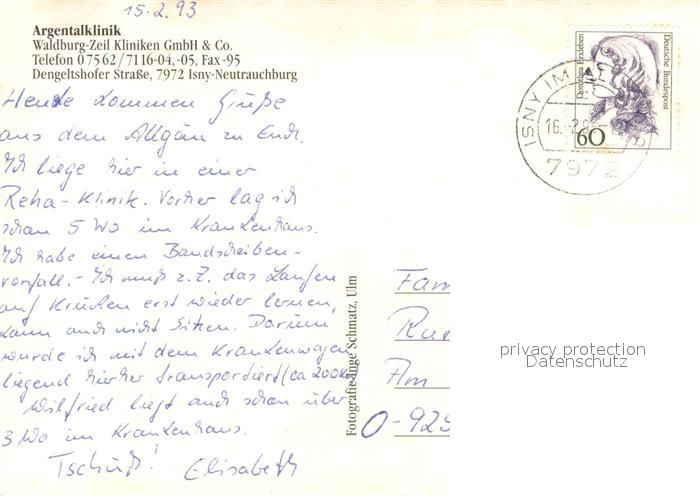 15.2.93
Argentalklinik
Waldburg-Zeil Kliniken GmbH & Co.
Telefon 0 75 62 / 7116-04, -05, Fax -95
Dengeltshofer Straße, 7972 Isny-Neutrauchburg
Heute kommen Grüße
aus dem Allgäu zu Euch.
Ich liege hier in einer
Reha-Klinik. Vorher lag ich
schon 5 Wo im Krankenhaus.
Ich habe einen Bandscheiben-
vorfall. - Ich muß z.Z. das Laufen
auf Krücken erst wieder lernen,
kann auch nicht sitzen. Darum
wurde ich mit dem Krankenwagen
liegend hierher transportiert (ca 200km
Wilfried liegt auch schon über
3 Wo im Krankenhaus.
Tschüß! Elisabeth
Fotografie Inge Schmatz, Ulm
Dorothea Erxleben
Deutsche Bundespost
60
ISNY IM
16.-2.9
7972
Fam
Am
O-925
privacy protection
Datenschutz